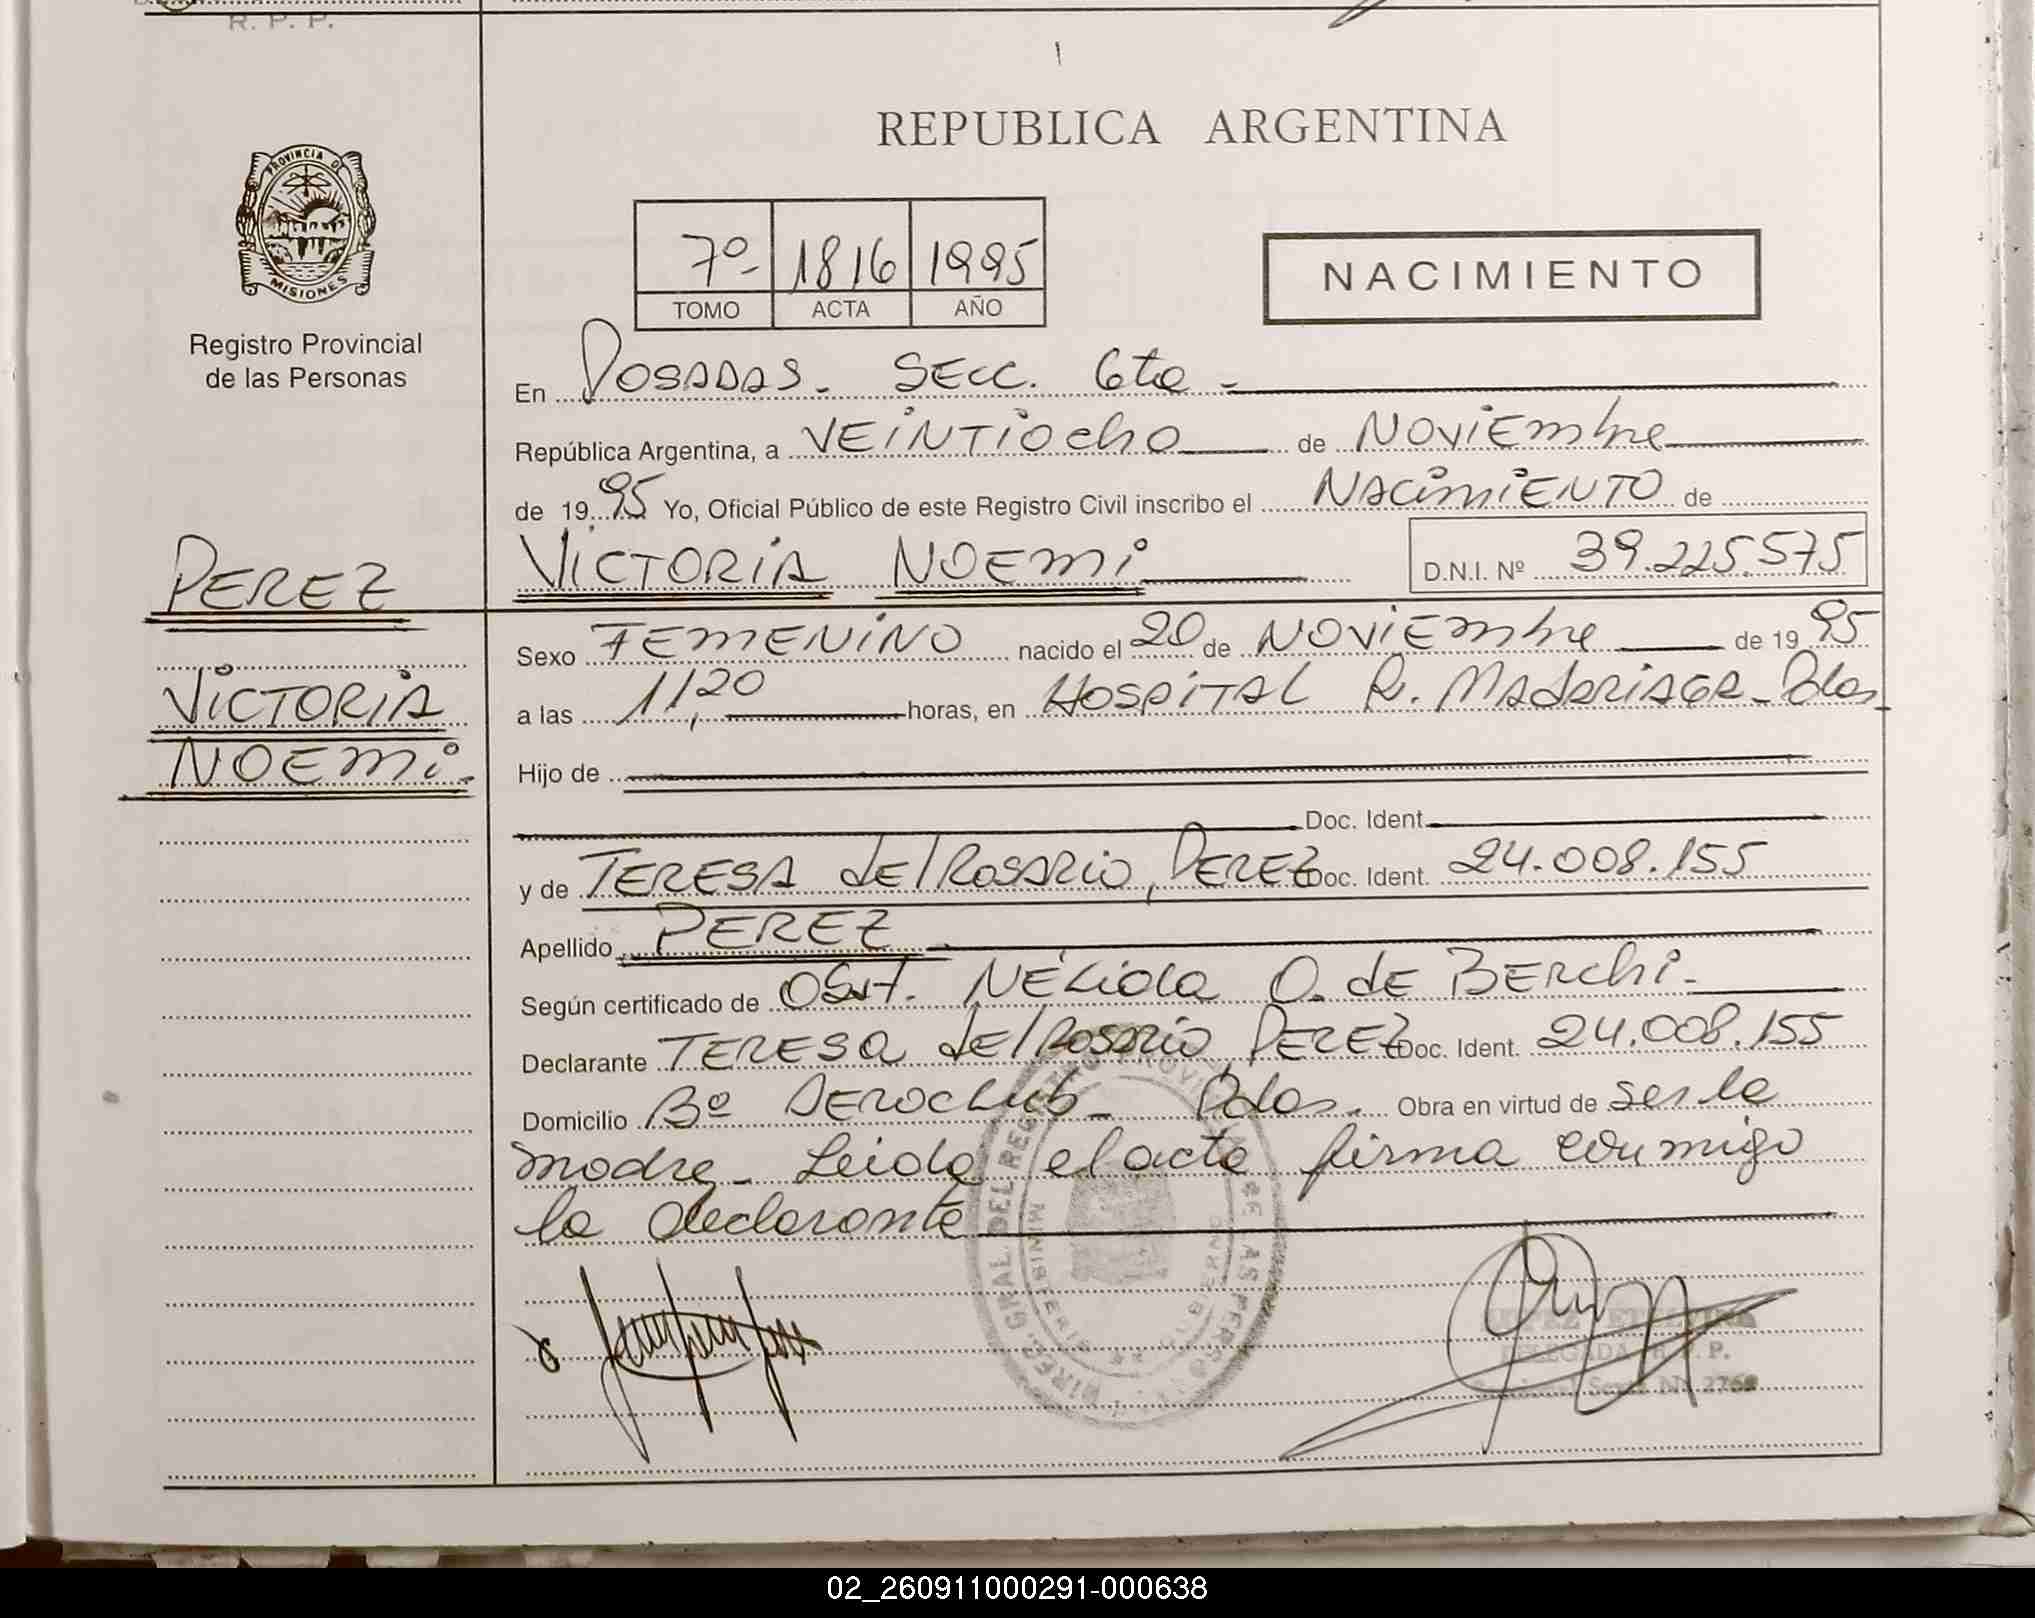 R. P. P.
REPUBLICA ARGENTINA
PROVINCIA DE
MISIONES
Registro Provincial
de las Personas
7º- 1816 1995
TOMO ACTA AÑO
NACIMIENTO
En POSADAS. SECC. 6ta -
República Argentina, a VEINTIOCHO de NOVIEMBRE
de 1995 Yo, Oficial Público de este Registro Civil inscribo el NACIMIENTO de
PEREZ
VICTORIA NOEMI D.N.I. Nº 39.225.575
Sexo FEMENINO nacido el 20 de NOVIEMBRE de 1995
VICTORIA
a las 11,20 horas, en HOSPITAL R. MADARIAGA - Pdas
NOEMI.
Hijo de
Doc. Ident.
y de TERESA del ROSARIO, PEREZ Doc. Ident. 24.008.155
Apellido PEREZ
Según certificado de Obst. NÉLIDA O. de BERCHI -
Declarante TERESA del Rosario, PEREZ Doc. Ident. 24.008.155
Domicilio Bº AEROCLUB - Pdas. Obra en virtud de ser la
madre - Leida el acta firma conmigo
la declarante
DELEGADA R. P. P.
02_260911000291-000638